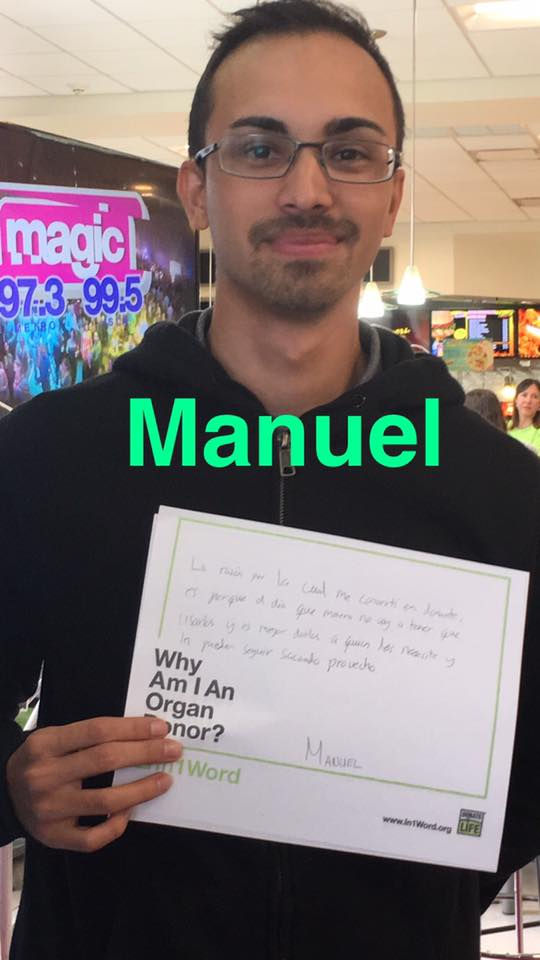 magic!
97.3 99.5
Manuel
La razón por la cual me converti en donante,
es porque el día que muera no voy a tener que
usarlos y es mejor darlos a quien los necesite y
le puedan seguir sacando provecho
Why
Am I An
Organ
Donor?
In1Word
MANUEL
www.In1Word.org
DONATE
LIFE